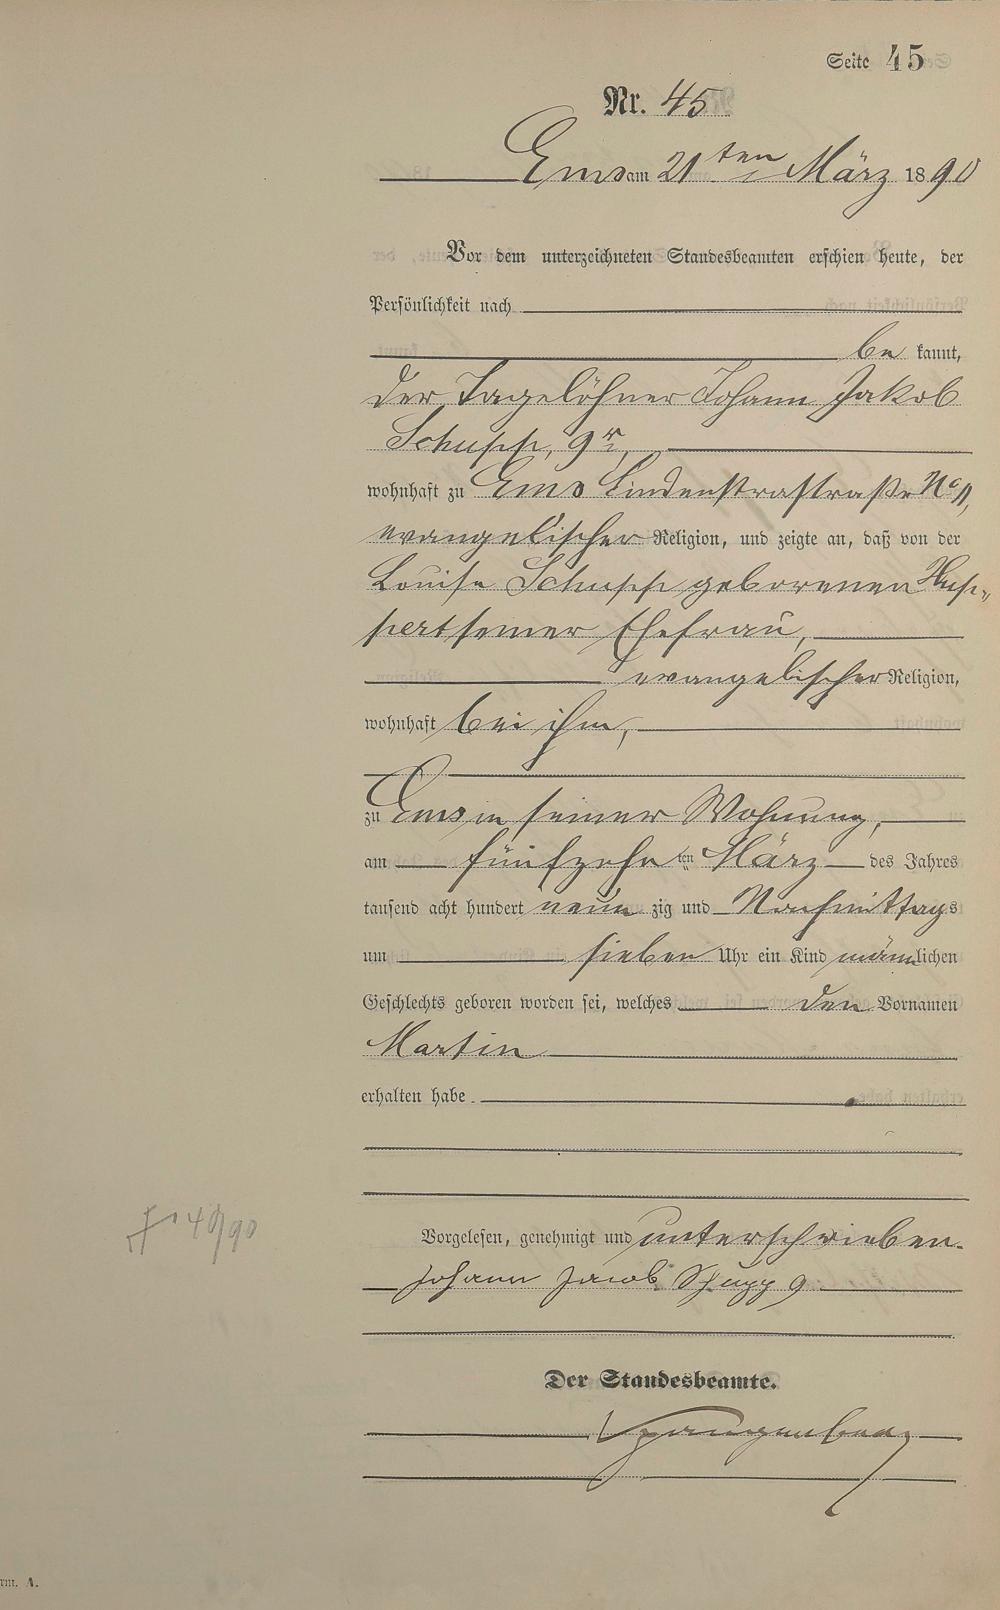 Seite 45
Nr. 45
Ems am 21ten März 1890
Vor dem unterzeichneten Standesbeamten erschien heute, der
Persönlichkeit nach
be kannt,
der Tagelöhner Johann Jakob
Schupp, 9r,
wohnhaft zu Ems Lindenstrastraße No
evangelischer Religion, und zeigte an, daß von der
Louise Schupp geborenen Hup„
pert seiner Ehefrau,
evangelischer Religion,
wohnhaft bei ihm,
zu Ems in seiner Wohnung,
am fünfzehn ten März des Jahres
tausend acht hundert neun zig und Nachmittags
um sieben Uhr ein Kind männlichen
Geschlechts geboren worden sei, welches den Vornamen
Martin
erhalten habe
Vorgelesen, genehmigt und unterschrieben.
Johann Jacob Schupp 9
Der Standesbeamte.
Spangenberg
rm. A.